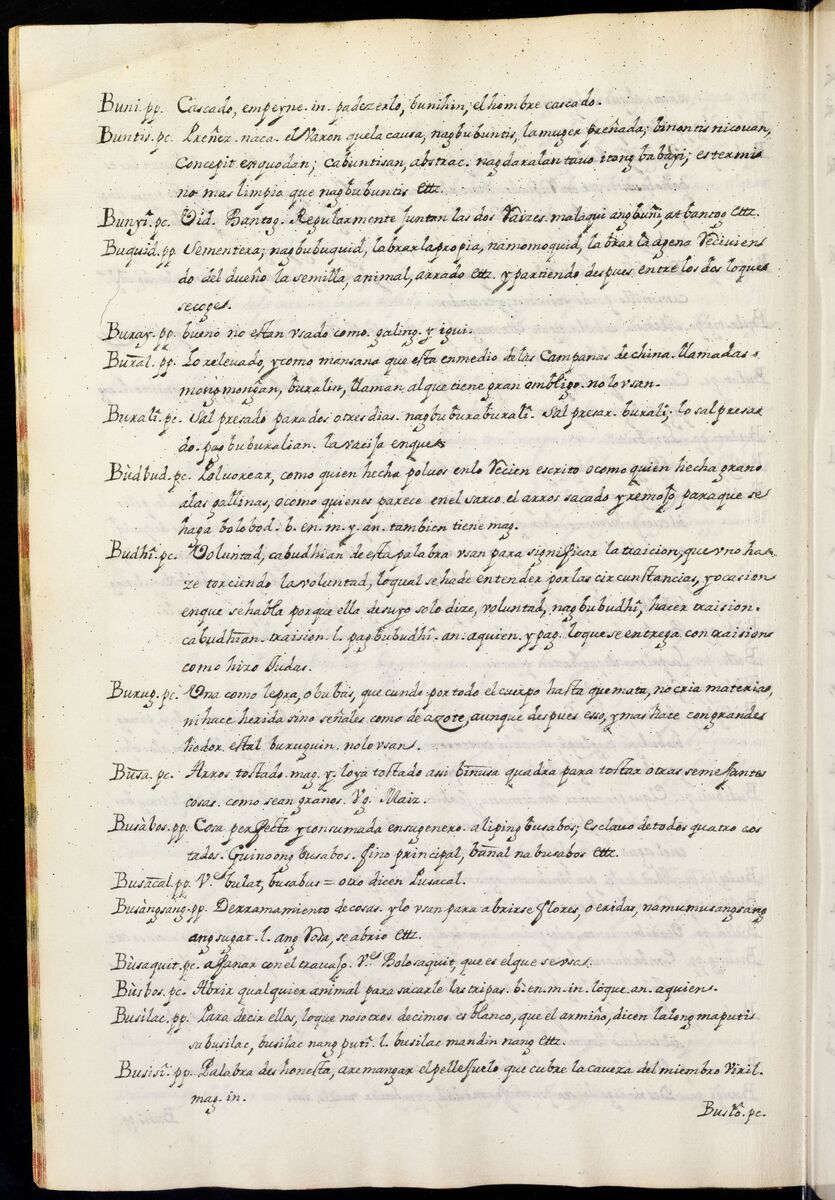 Buni. pp. Cascado, empeyne. in. padezerlo, bunihin; el hombre cascado.
Buntis. pc. Preñez. naca. el Varon que la causa, nagbubuntis, la muger preñada; binontis nicouan,
Concepit enquodan; cabuntisan, abstrac. nagdaralan tauo itong babayi; es termi
no mas limpio que nagbubuntis ettz.
Bunyi. pc. Vid. Bantog. Regularmente juntan las dos Vaizes. malaqui ang buñi, at bantog ettz.
Buquid. pp. Sementera; nagbubuquid, labrar la propia, namomoquid, labrar la agena Reciviens
do del dueño la semilla, animal, arrado ettz. y partiendo despues entre los dos loques
se coge.
Buray. pp. bueno no estan vsado como galing. y igui.
Bural. pp. Lo relevado, y como mansana que esta enmedio de las Campanas de china. llamadas
mongmongan, buralin, llaman al que tiene gran ombligo. no lo vsan.
Burali. pc. Sal presado para dos o tres dias. nagbuburaburali. Sal presar. burali; lo sal presa
do. pagbuburalian. la vacija enque
Bùdbud. pc. Polvorear, como quien hecha polvos enlo Recien escrito o como quien hecha grano
alas gallinas, o como quienes parece en el sarco el arros sacado y remojo paraque se
haga bolobod. b. en. m. y. an. tambien tiene mag.
Budhi. pc. Voluntad, cabudhian de esta palabra vsan para significar la traicion, que vno ha
ze torciendo la voluntad, loqual se hade entender por las circunstancias, y ocasion
enque se habla porque ella desuyo solo dize, voluntad, nagbubudhi, hacer traision.
cabudhian. traision. l. pagbubudhi. an. aquien. y pag. loque se entrega con traision
como hizo Judas.
Burug. pc. Vna como lepra, o bubas, que cunde por todo el cuerpo hasta que mata, no cria materias,
ni hace herida sino señales como de azote, aunque despues esso, y mas hace con grandes
hedor. estal buruguin. nolo vsan.
Busa. pc. Arros tostado. mag. y. loya tostado asi binusa quadra para tostar otras semejantes
cosas. como sean granos. Vg. Maiz.
Busàbos. pp. Cosa perfecta y consumada ensu genero. aliping busabos; Esclavo de todos quatro cos
tados. Guinoong busabos. fino principal, banal na busabos ettz.
Busacal. pp. V.e bulat, busabus = otro dicen Lusacal.
Busàngsang. pp. Derramamiento de cosas. y lo vsan para abrirse flores, o eridas, namumusangsang
ang sugat. l. ang Rosa, se abrio ettz.
Bùsaquit. pc. afanar con el travajo. V.e Bolosaquit, que es el que se vsa.
Bùsbos. pc. Abrir qualquier animal para sacarle las tripas. b. en. m. in. loque. an. aquien.
Busilac. pp. Para decir ellos, loque nosotros decimos es blanco, que el armiño, dicen lalong maputi
sa busilac, busilac nang puti. l. busilac mandin nang ettz.
Busisi. pp. Palabra deshonesta, aremangar el pellejuelo que cubre la caveza del miembro Viril.
mag. in.
Busto. pc.